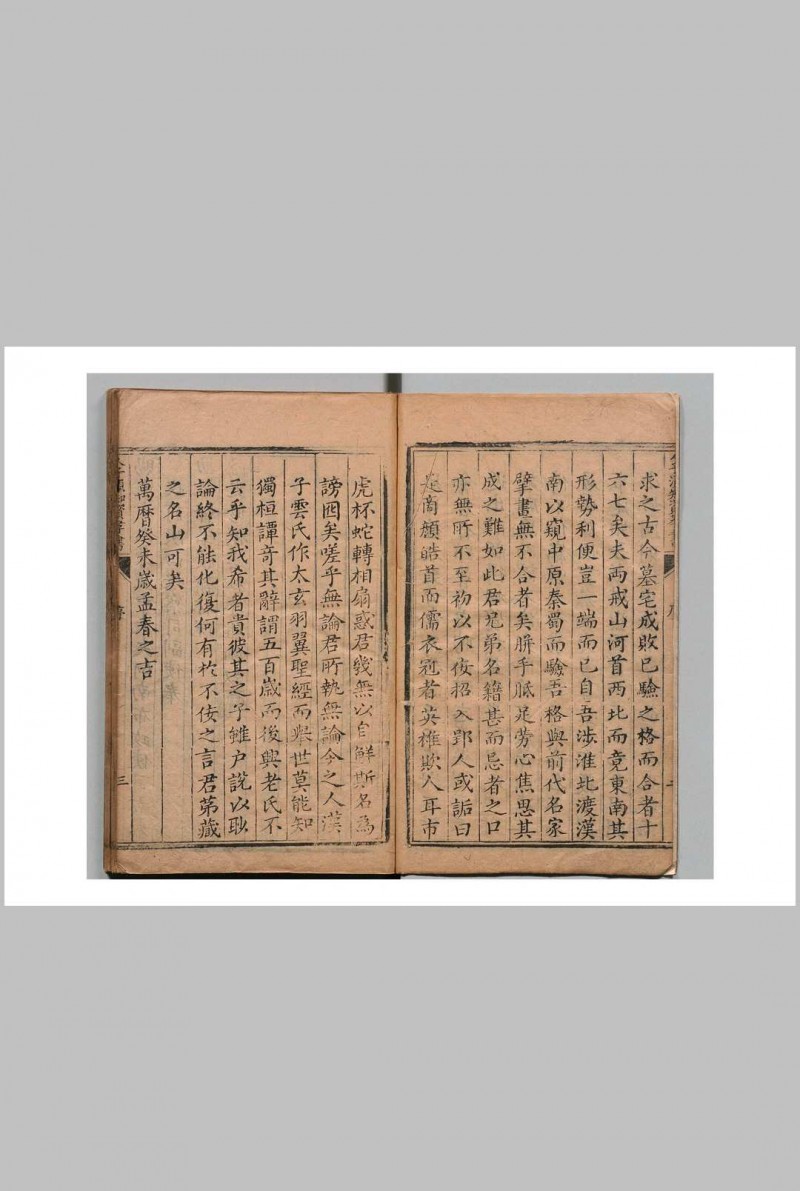 求之古今墓宅成敗已驗之格而合者十
六七矣夫兩戒山河首西北而竟東南其
形勢利便豈一端而已自吾涉淮北渡漢
南以窺中原秦蜀而驗吾格與前代名家
擘畫無不合者矣胼手胝足勞心焦思其
成之難如此君兄弟名籍甚而忌者之口
亦無所不至初以不佞招入郢人或詬曰
是商顏皓首而儒衣冠者英雄欺人耳市
序
虎杯蛇轉相扇惑君幾無以自鮮斯名為
謗囮矣嗟乎無論君所執無論今之人漢
子雲氏作太玄羽翼聖經而舉世莫能知
獨桓譚奇其辭謂五百歲而後興老氏不
云乎知我希者貴彼其之子雖户説以眇
論終不能化復何有於不佞之言君第藏
之名山可矣
萬曆癸未歲孟春之吉
序
三